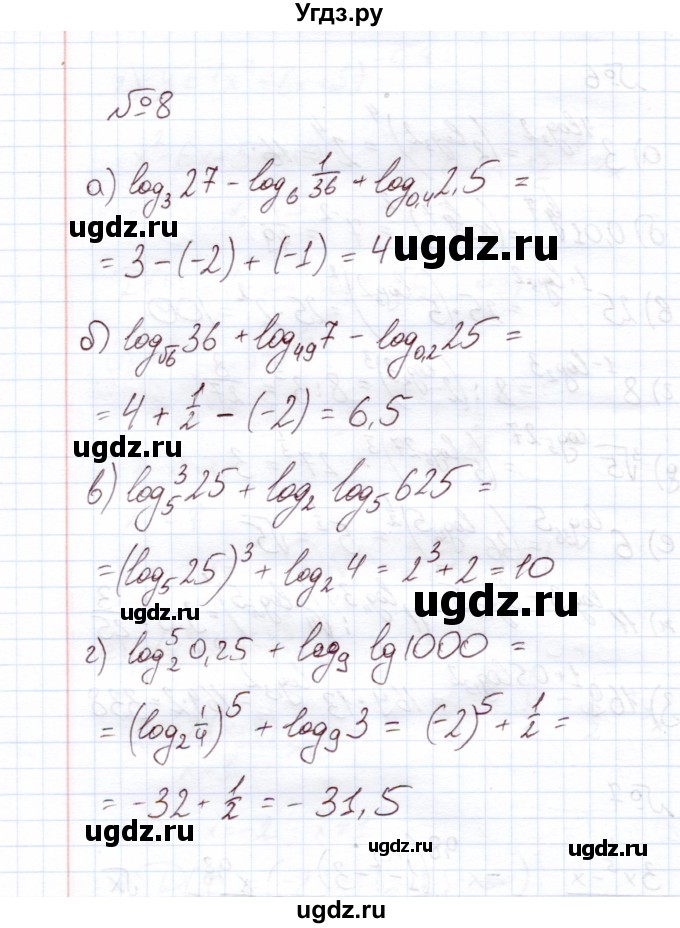 Угдз.ру
№8
а) log₃ 27 - log₆ 1/36 + log₀,₄ 2,5 =
ugdz.ru ugdz.ru
= 3 - (-2) + (-1) = 4
б) log_√6 36 + log₄₉ 7 - log₀,₂ 25 =
= 4 + 1/2 - (-2) = 6,5
ugdz.ru
в) log₅³ 25 + log₂ log₅ 625 =
= (log₅ 25)³ + log₂ 4 = 2³ + 2 = 10
ugdz.ru ugdz.ru
г) log₂⁵ 0,25 + log₉ lg 1000 =
= (log₂ 1/4)⁵ + log₉ 3 = (-2)⁵ + 1/2 =
= -32 + 1/2 = -31,5
ugdz.ru ugdz.ru ugdz.ru
ugdz.ru